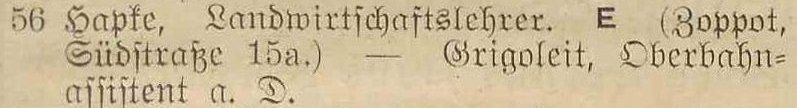 56 Hapke, Landwirtschaftslehrer. E (Zoppot,
Südstraße 15a.) — Grigoleit, Oberbahn-
assistent a. D.